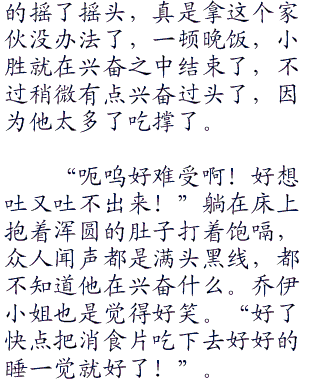 的摇了摇头，真是拿这个家
伙没办法了，一顿晚饭，小
胜就在兴奋之中结束了，不
过稍微有点兴奋过头了，因
为他太多了吃撑了。
“呃呜好难受啊！好想
吐又吐不出来！”躺在床上
抱着浑圆的肚子打着饱嗝，
众人闻声都是满头黑线，都
不知道他在兴奋什么。乔伊
小姐也是觉得好笑。“好了
快点把消食片吃下去好好的
睡一觉就好了！”。